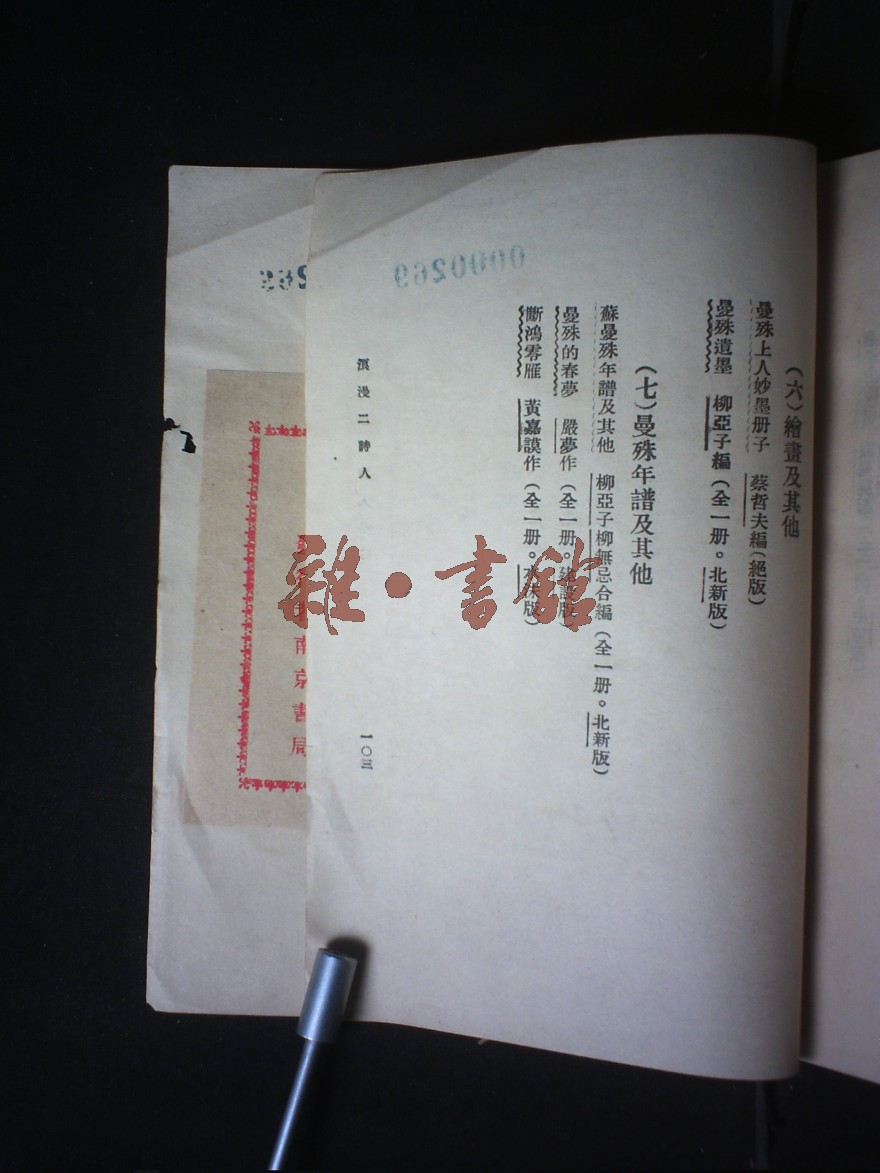 (六)繪畫及其他
曼殊上人妙墨册子 蔡哲夫編(絕版)
曼殊遺墨 柳亞子編(全一册。北新版)
(七)曼殊年譜及其他
蘇曼殊年譜及其他 柳亞子柳無忌合編(全一册。北新版)
曼殊的春夢 嚴夢作(全一册。建設版)
斷鴻零雁 黃嘉謨作(全一册。水沫版)
浪漫二詩人
一〇三
0000269
南京書局
雜·書館